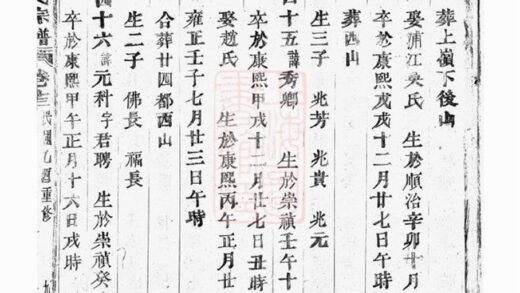 葬上嶺下後山
娶浦江吳氏 生於順治辛卯十月
卒於康熙戊戌十二月廿七日午時
葬西山
生三子 兆芳 兆貴 兆元
四十五諱秀卿 生於崇禎壬午十
卒於康熙甲戌十二月廿七日丑時
娶趙氏 生於康熙丙午正月廿
雍正壬子七月廿三日午時
合葬廿四都西山
生二子 佛長 福長
十六諱元科字君聘 生於崇禎癸
卒於康熙甲午正月十六日戌時
宗譜 卷之三 民國乙酉重修